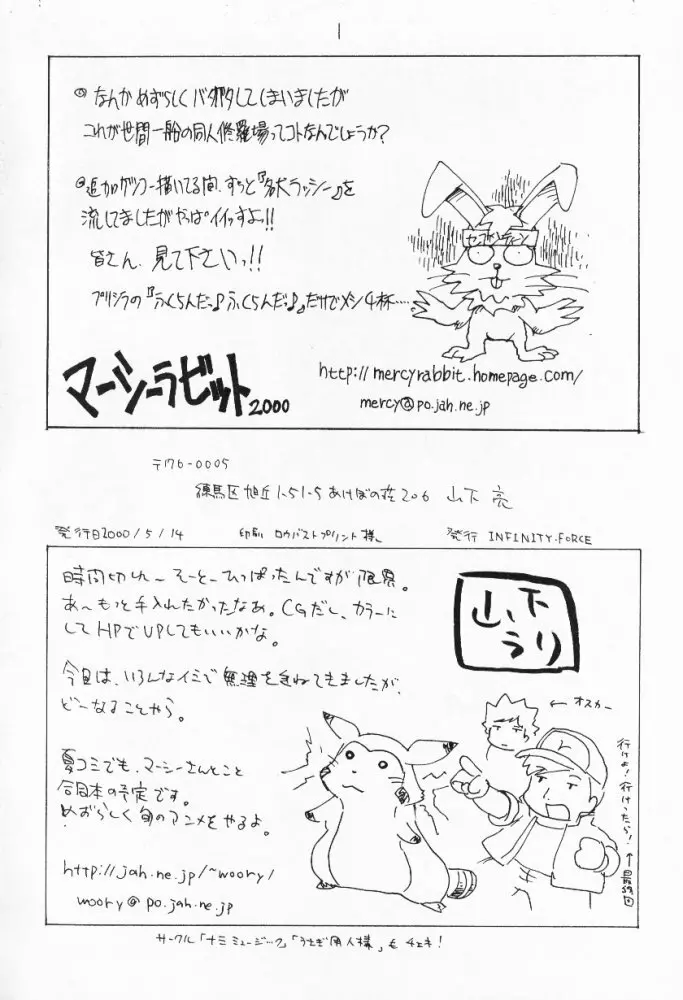 なんかめずらしくバタバタしてしまいましたが
これが世間一般の同人修羅場ってコトなんでしょうか?
追加ゲンコー描いてる間、ずっと『名犬ラッシー』を
流してましたがやっぱイイっすよっ!!
皆さん、見て下さいっ!!
プリシラの『ふくらんだっ♪ふくらんだっ♪』だけでメシ4杯……
マーシーラビット2000
http://mercyrabbit.homepage.com/
mercy@po.jah.ne.jp
〒176-0005
練馬区旭丘1-51-5あけぼの荘206 山下 亮
発行日2000/5/14 印刷 ロウバストプリント様。 発行 INFINITY-FORCE
時間切れ〜そーとーひっぱったんですが限界。
あ〜もっと手入れたかったなあ。CGだし、カラーに
してHPでUPしてもいいかな。
今回は、いろんなイミで無理をきねてきましたが、
どーなることやら。
夏コミでも、マーシーさんとこと
合同本の予定です。
めずらしく旬のアニメをやるよ。
http://jah.ne.jp/~woory/
woory@po.jah.ne.jp
山下
うり
←オスカー
行けよ!行けったら!
↑最終回
サークル「ナミミュージック」「うさぎ同人様」もチェキ!